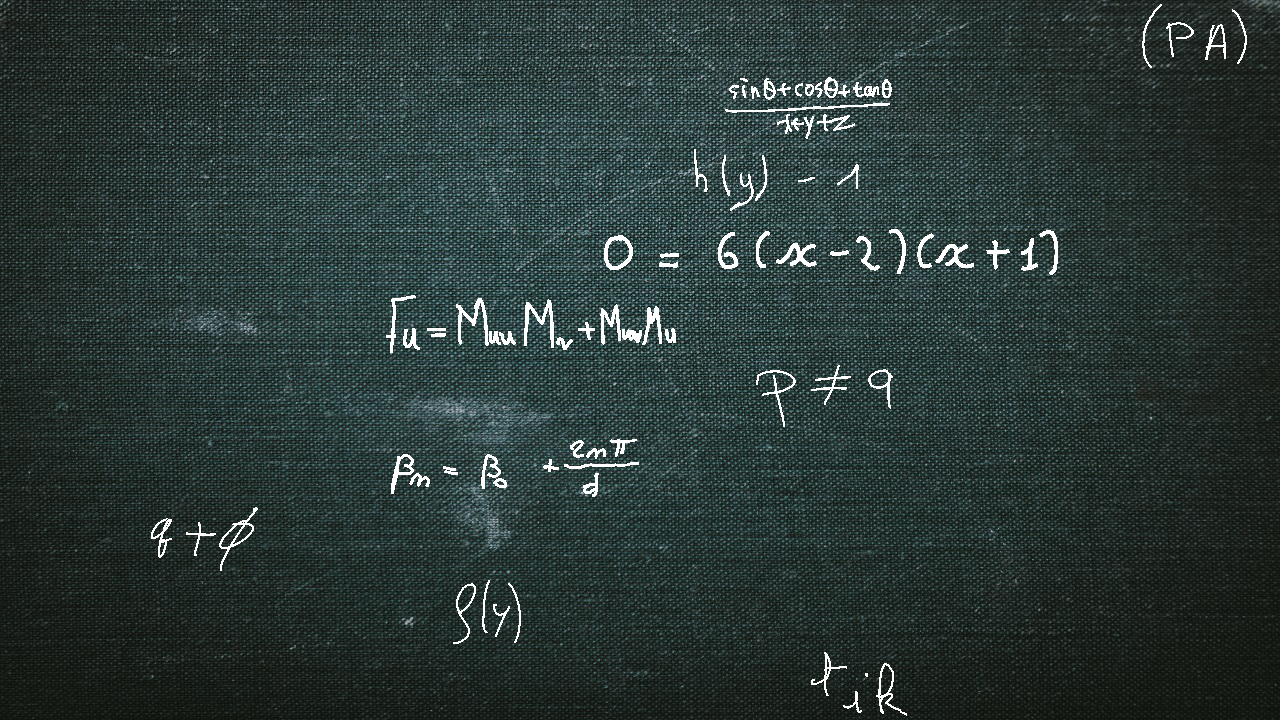 (PA)
\frac{sinθ+cosθ+tanθ}{x+y+z}
h(y) - 1
0 = 6(x-2)(x+1)
F_u = M_{uu} M_v + M_{uv} M_u
p ≠ q
β_n = β_0 + \frac{2nπ}{d}
q + ϕ
ρ(y)
t_{ik}